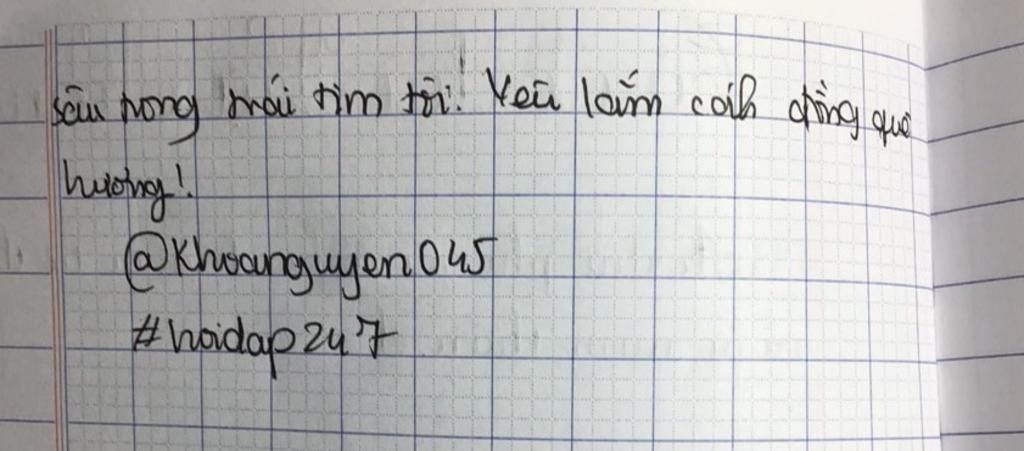 sâu trong mái tim tôi! Yêu lắm cánh đồng quê
hương!
@Khoanguyen045
#hoidap247